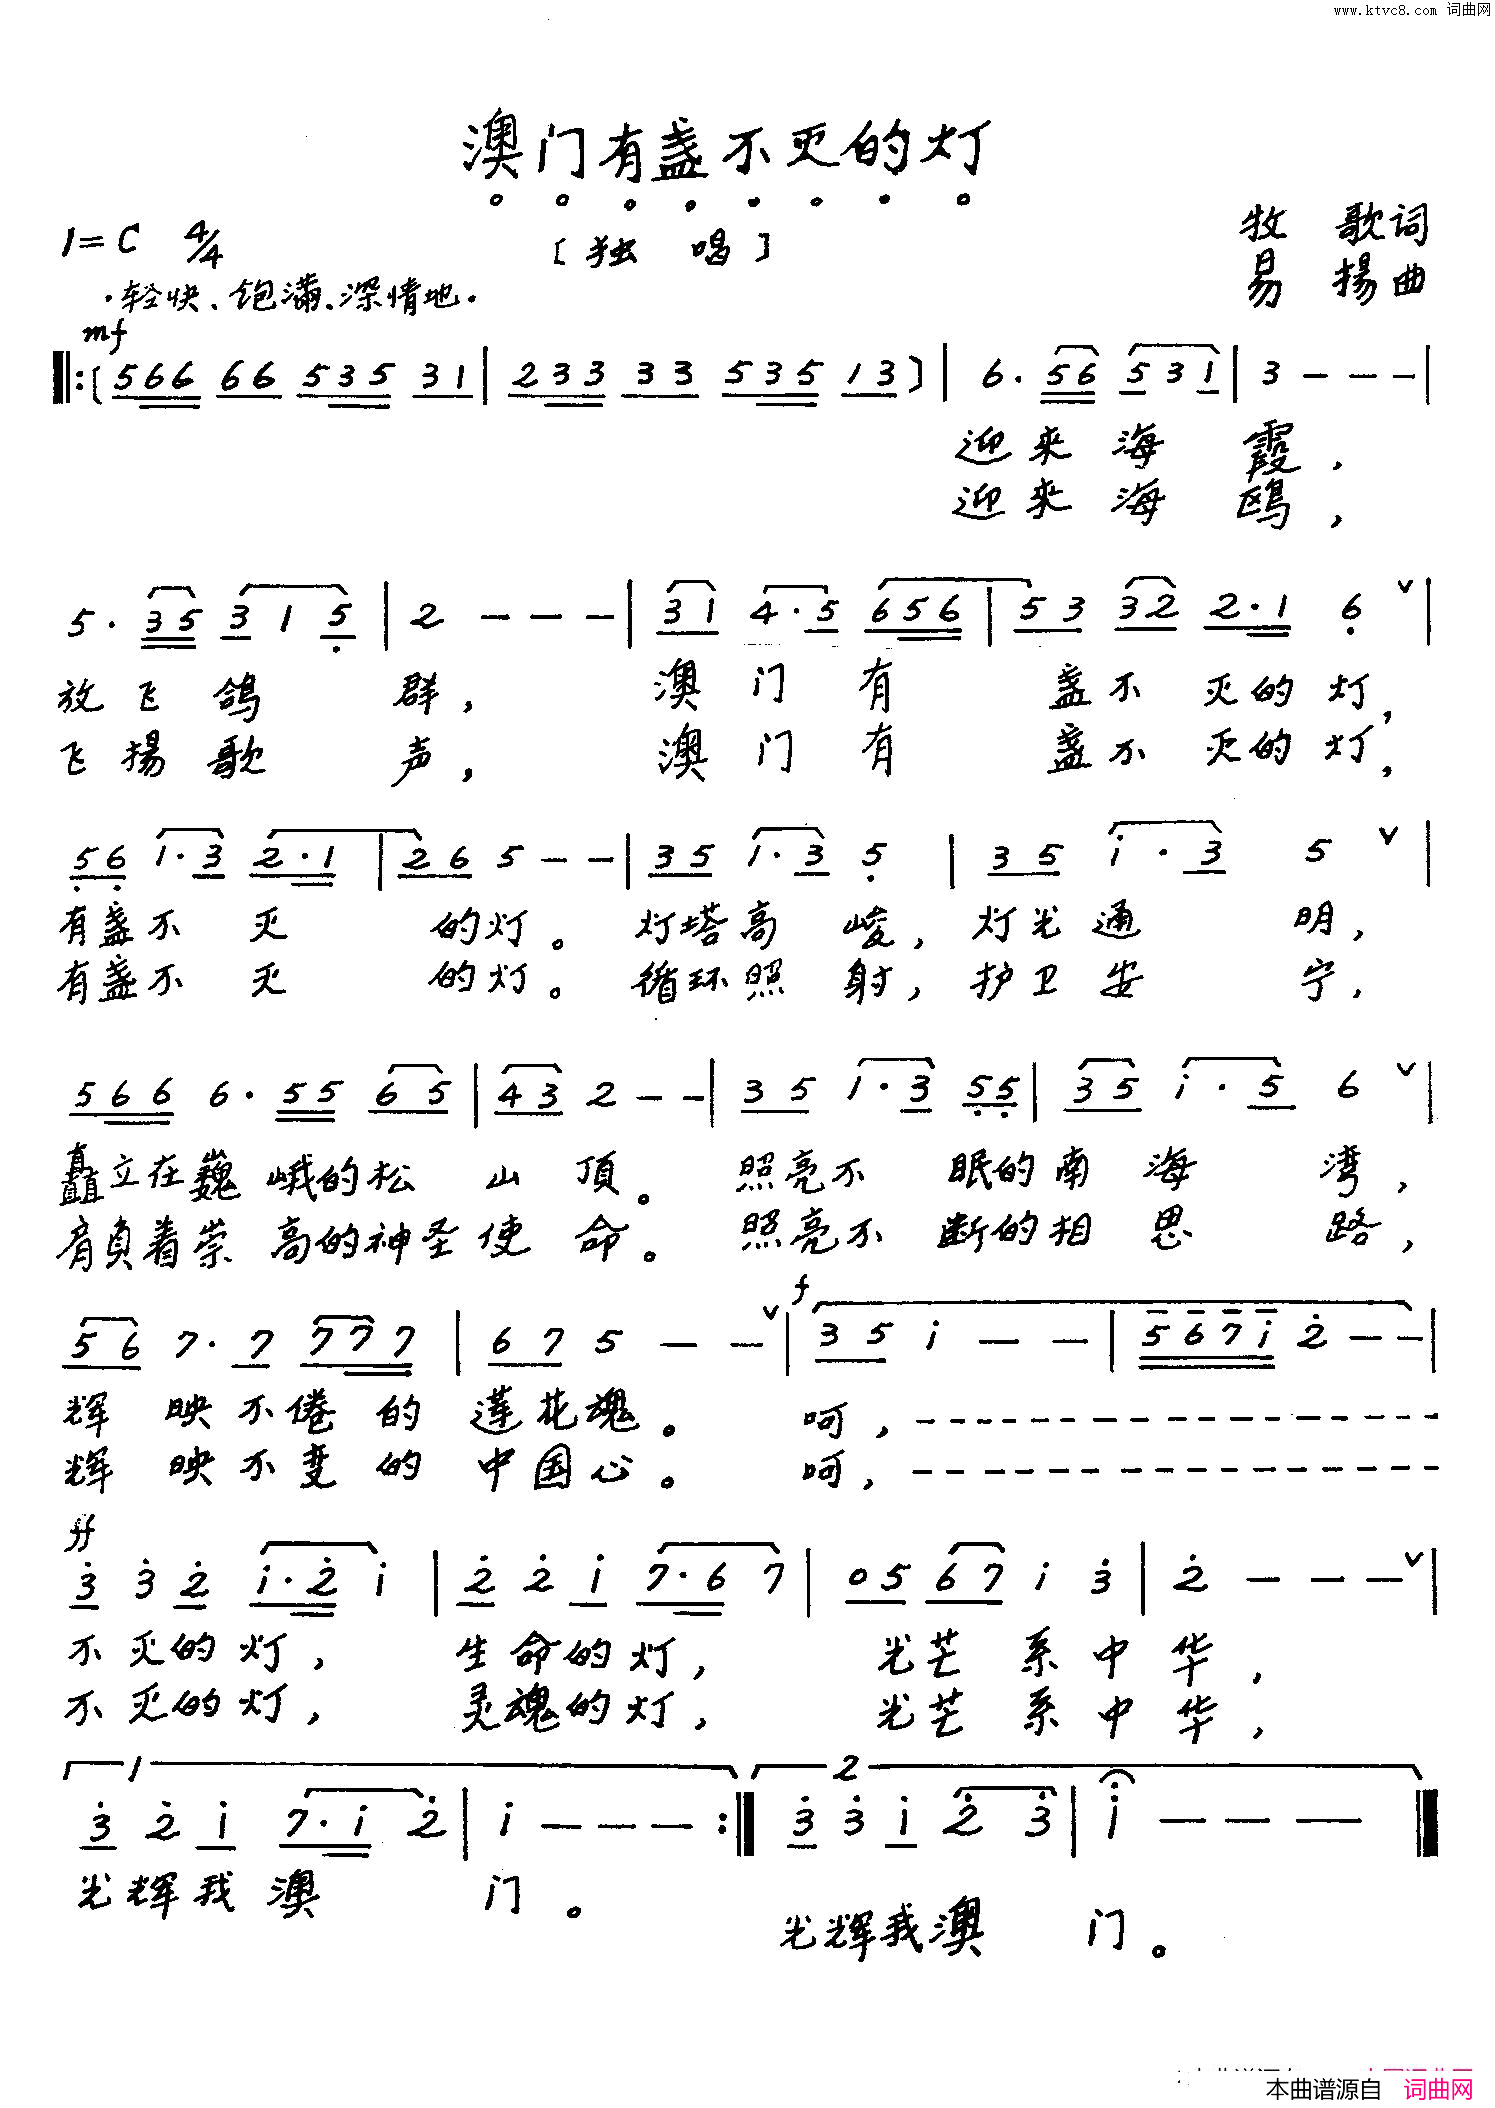 www.ktvc8.com 词曲网
澳门有盏不灭的灯
1=C 4/4 [独 唱] 牧 歌词
·轻快、饱满、深情地· 易 揚曲
mf
‖:(5 6 6 6 6 5 3 5 3 1 | 2 3 3 3 3 5 3 5 1 3) | 6· 5 6 5 3 1 | 3 – – – |
迎来海 霞,
迎来海 鸥,
5· 3 5 3 1 5 | 2 – – – | 3 1 4·5 6 5 6 | 5 3 3 2 2·1 6 ∨ |
放飞鸽 群, 澳门有 盏不灭的灯,
飞揚歌 声, 澳门有 盏不灭的灯,
5 6 1·3 2·1 | 2 6 5 – – | 3 5 1·3 5 | 3 5 i·3 5 ∨ |
有盏不灭 的灯。灯塔高 峻,灯光通 明,
有盏不灭 的灯。循环照 射,护卫安 宁,
5 6 6 6· 5 5 6 5 | 4 3 2 – – | 3 5 1·3 5 5 | 3 5 i·5 6 ∨ |
矗立在巍峨的松 山 顶。 照亮不 眠的南 海 湾,
肩负着崇高的神圣使 命。 照亮不 断的相 思 路,
f
5 6 7·7 7 7 7 | 6 7 5 – – ∨ | 3 5 i – – | 5 6 7 i 2 – – |
辉 映不倦 的 莲花魂。 呵,– – – – – – – – – – – –
辉 映不变 的 中国心。 呵,– – – – – – – – – – – –
ff
3 3 2 i·2 i | 2 2 i 7·6 7 | 0 5 6 7 i 3 | 2 – – – ∨ |
不灭的灯, 生命的灯, 光芒 系中华,
不灭的灯, 灵魂的灯, 光芒 系中华,
1 2
3 2 i 7·i 2 | i – – – :‖ 3 3 i 2 3 | i – – – ‖
光辉我澳 门。
光辉我澳 门。
本曲谱源自 词曲网